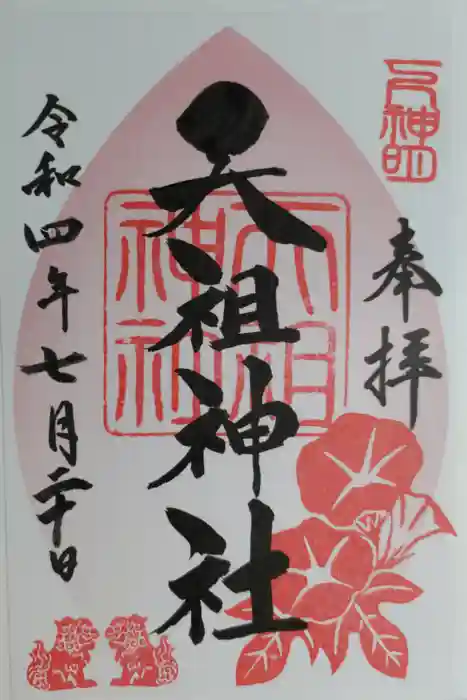 奉拝
天祖神社
天祖神社
令和四年七月二十日